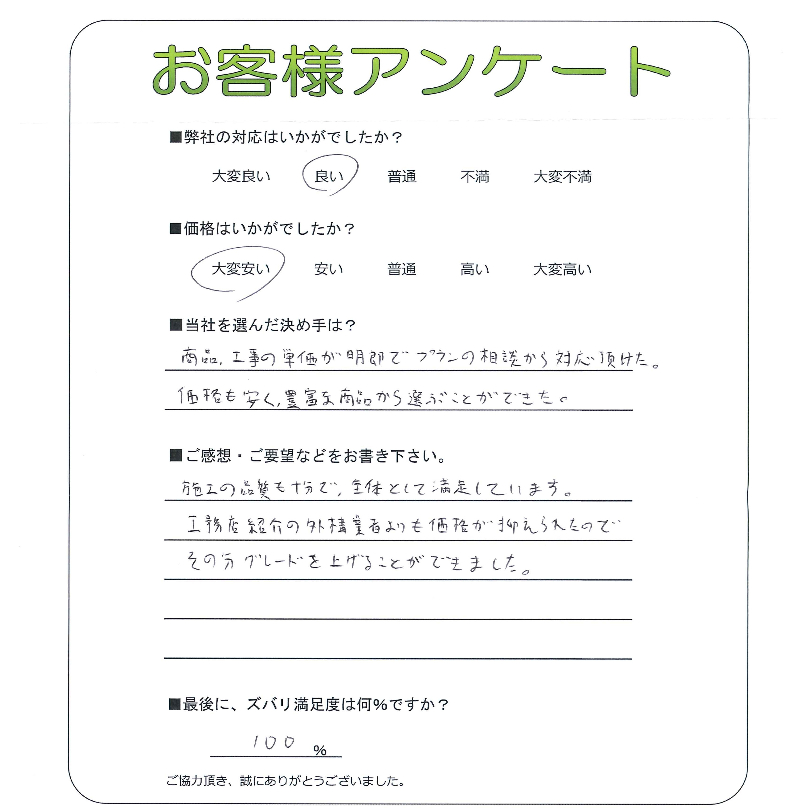 お客様アンケート
■弊社の対応はいかがでしたか？
大変良い 良い 普通 不満 大変不満
■価格はいかがでしたか？
大変安い 安い 普通 高い 大変高い
■当社を選んだ決め手は？
商品,工事の単価が明郎でプランの相談から対応頂けた。
価格も安く,豊富な商品から選ぶことができた。
■ご感想・ご要望などをお書き下さい。
施工の品質も十分で,全体として満足しています。
工務店紹介の外構業者よりも価格が抑えられたので
その分グレードを上げることができました。
■最後に、ズバリ満足度は何%ですか？
100 %
ご協力頂き、誠にありがとうございました。